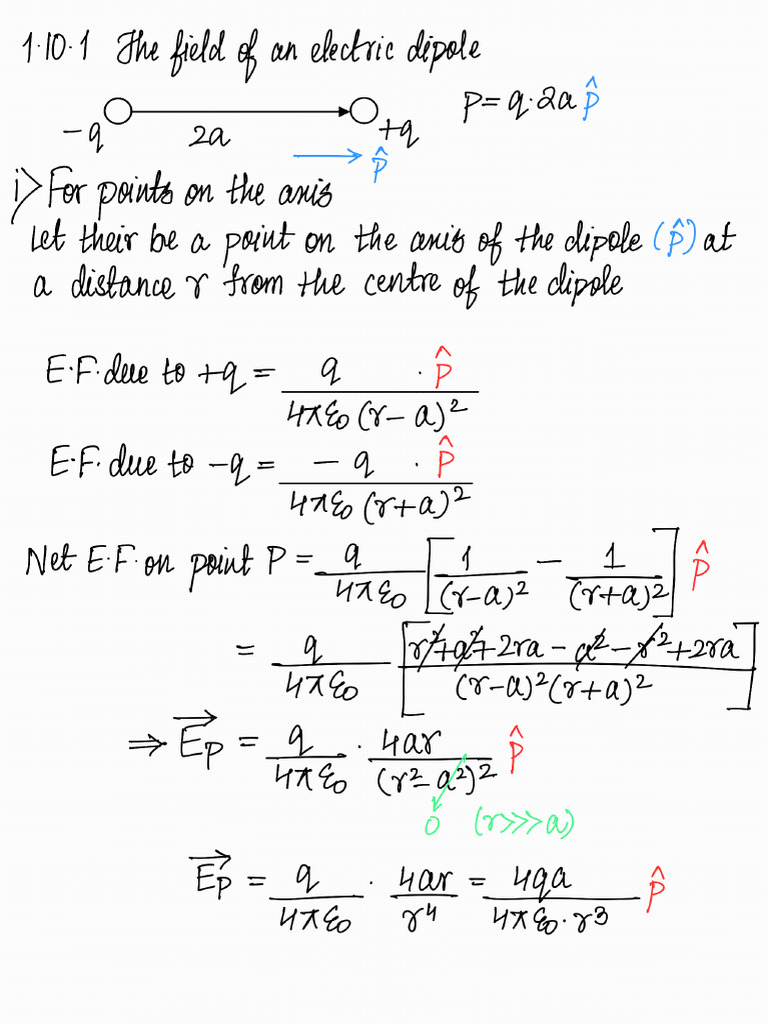 1.10.1 The field of an electric dipole
-q 2a +q p = q.2a p̂
p̂
i) For points on the axis
Let their be a point on the axis of the dipole (p̂) at
a distance r from the centre of the dipole
E.F. due to +q = q / 4πε₀(r-a)² . p̂
E.F. due to -q = -q / 4πε₀(r+a)² . p̂
Net E.F. on point P = q / 4πε₀ [1 / (r-a)² - 1 / (r+a)²] p̂
= q / 4πε₀ [r² + a² + 2ra - a² - r² + 2ra / (r-a)²(r+a)²]
⇒ E⃗p = q / 4πε₀ . 4ar / (r² - a²)² p̂
0 (r>>>a)
E⃗p = q / 4πε₀ . 4ar / r⁴ = 4qa / 4πε₀.r³ p̂